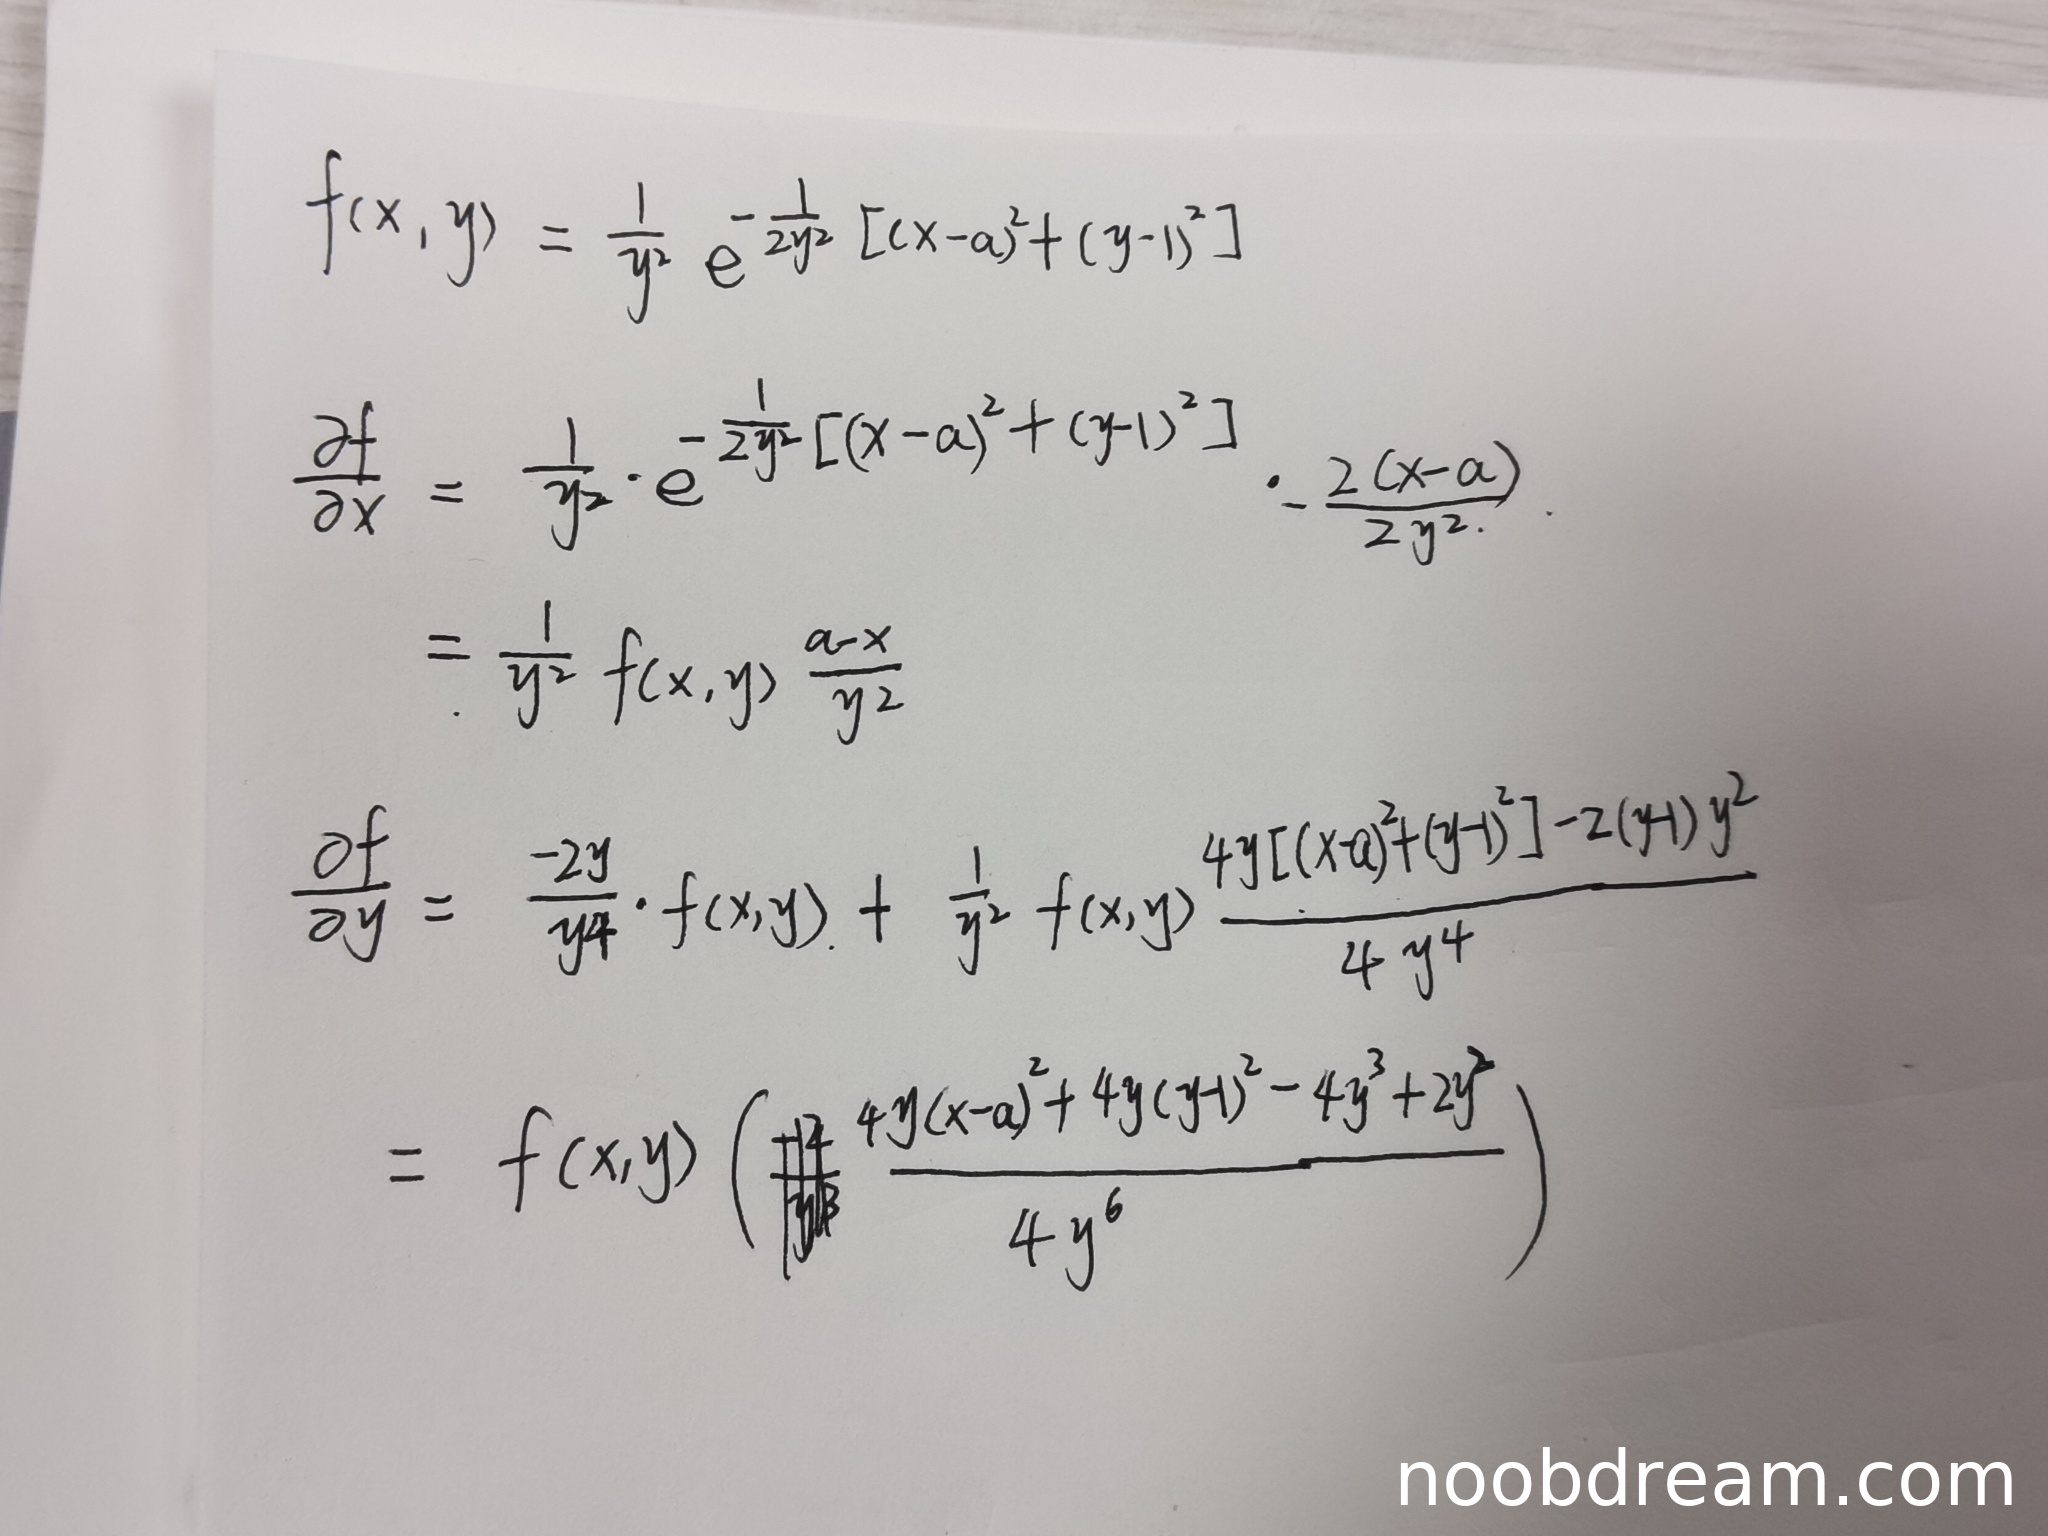 f(x,y) = 1/y² e^(-1/(2y²) [(x-a)²+(y-1)²])
∂f/∂x = 1/y² · e^(-1/(2y²) [(x-a)²+(y-1)²]) · - 2(x-a)/(2y²)
= 1/y² f(x,y) (a-x)/y²
∂f/∂y = -2y/y⁴ · f(x,y) + 1/y² f(x,y) (4y[(x-a)²+(y-1)²]-2(y-1)y²)/(4y⁴)
= f(x,y) ( (4y(x-a)²+4y(y-1)²-4y³+2y²)/(4y⁶) )
noobdream.com